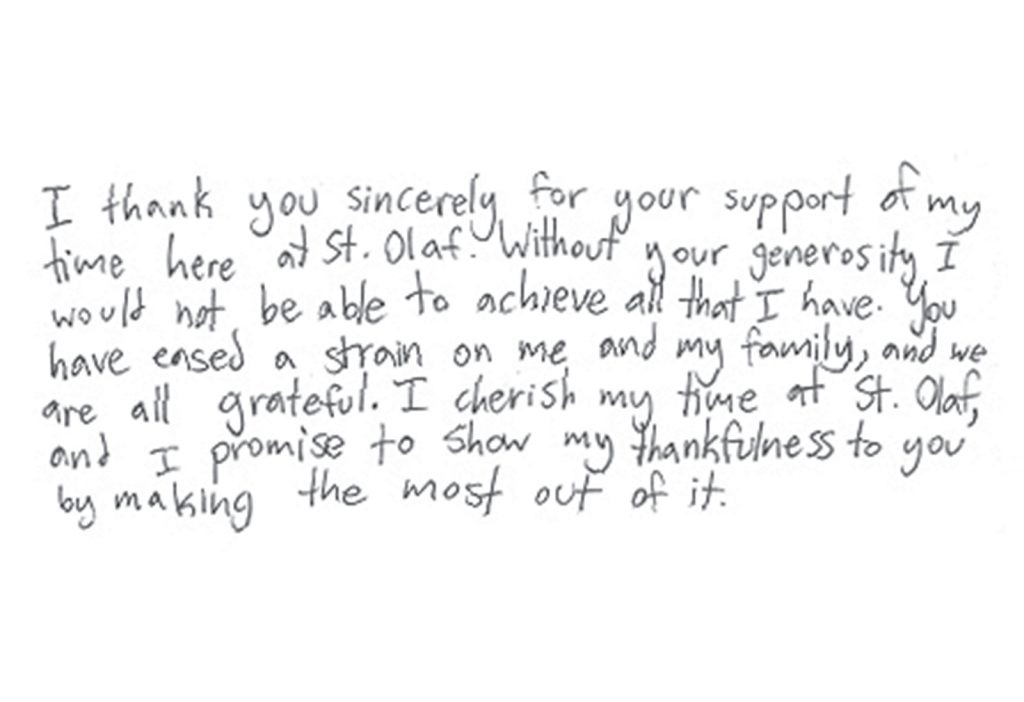 I thank you sincerely for your support of my
time here at St. Olaf. Without your generosity I
would not be able to achieve all that I have. You
have eased a strain on me and my family, and we
are all grateful. I cherish my time at St. Olaf,
and I promise to show my thankfulness to you
by making the most out of it.